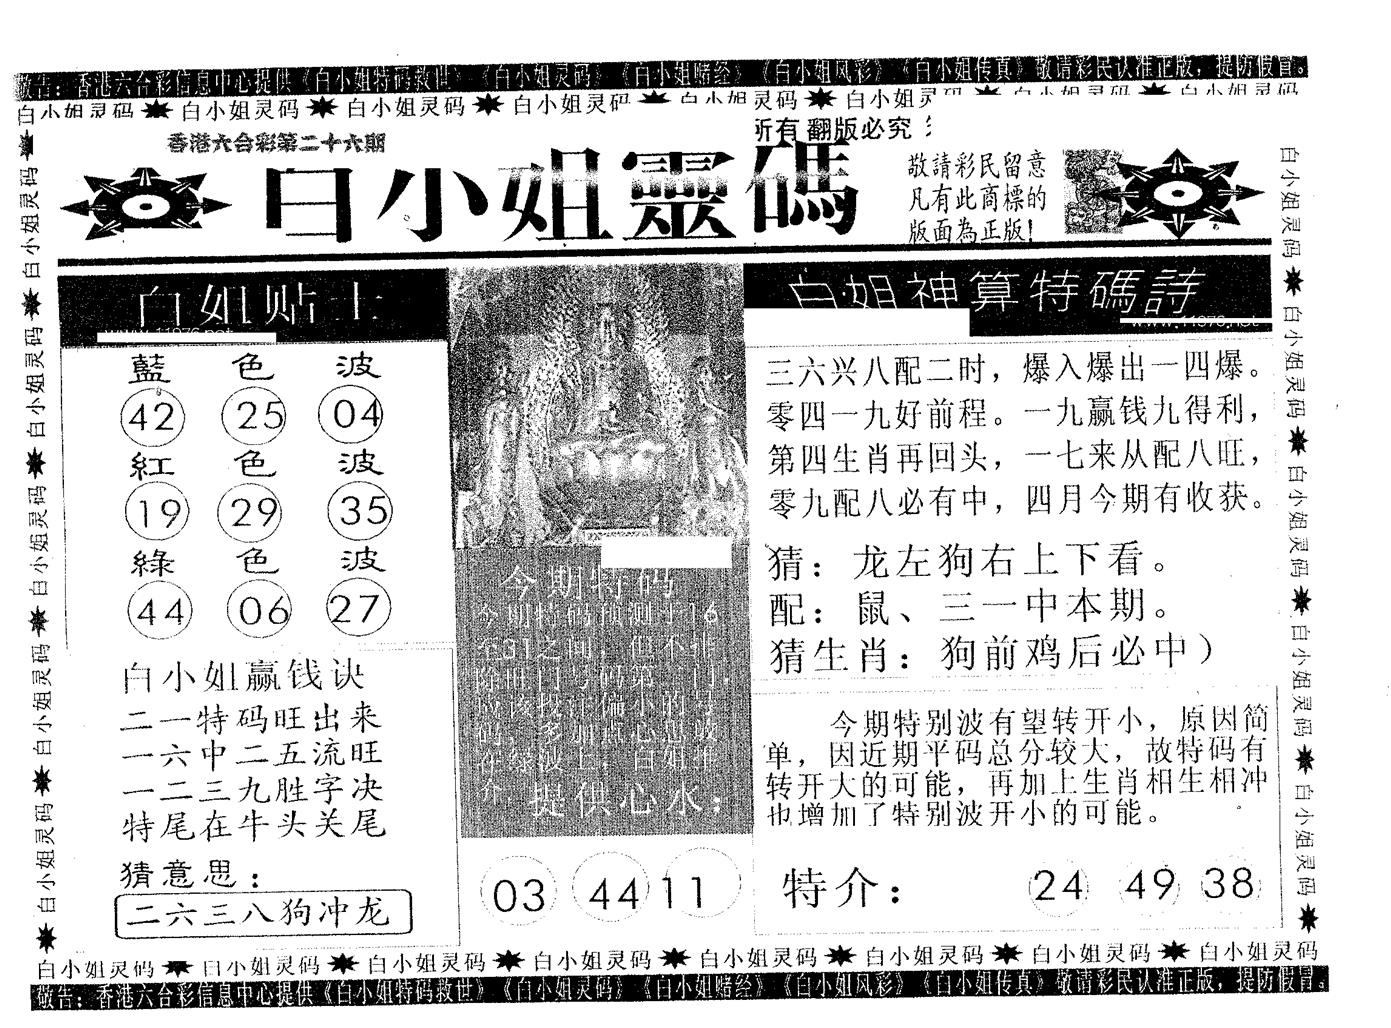 敬告：香港六合彩信息中心提供《白小姐特码救世》《白小姐灵码》《白小姐赌经》《白小姐风彩》《白小姐传真》敬请彩民认准正版，提防假冒。
白小姐灵码 白小姐灵码 白小姐灵码 白小姐灵码 白小姐灵码 白小姐灵码 白小姐灵码 白小姐灵码
香港六合彩第二十六期
所有 翻版必究
白小姐靈碼
敬請彩民留意
凡有此商標的
版面為正版!
白小姐灵码 白小姐灵码 白小姐灵码 白小姐灵码 白小姐灵码
白小姐灵码 白小姐灵码 白小姐灵码 白小姐灵码 白小姐灵码
白姐贴士
www.11976.net
藍 色 波
42 25 04
紅 色 波
19 29 35
綠 色 波
44 06 27
白小姐赢钱诀
二一特码旺出来
一六中二五流旺
一二三九胜字决
特尾在牛头关尾
猜意思：
二六三八狗冲龙
今期特码
今期特码预测于16
至31之间，但不排
除
提供心水：
03 44 11
白姐神算特碼詩
www.11976.net
三六兴八配二时，爆入爆出一四爆。
零四一九好前程。一九赢钱九得利，
第四生肖再回头，一七来从配八旺，
零九配八必有中，四月今期有收获。
猜：龙左狗右上下看。
配：鼠、三一中本期。
猜生肖：狗前鸡后必中）
今期特别波有望转开小，原因简
单，因近期平码总分较大，故特码有
转开大的可能，再加上生肖相生相冲
也增加了特别波开小的可能。
特介： 24 49 38
白小姐灵码 白小姐灵码 白小姐灵码 白小姐灵码 白小姐灵码 白小姐灵码 白小姐灵码 白小姐灵码
敬告：香港六合彩信息中心提供《白小姐特码救世》《白小姐灵码》《白小姐赌经》《白小姐风彩》《白小姐传真》敬请彩民认准正版，提防假冒。